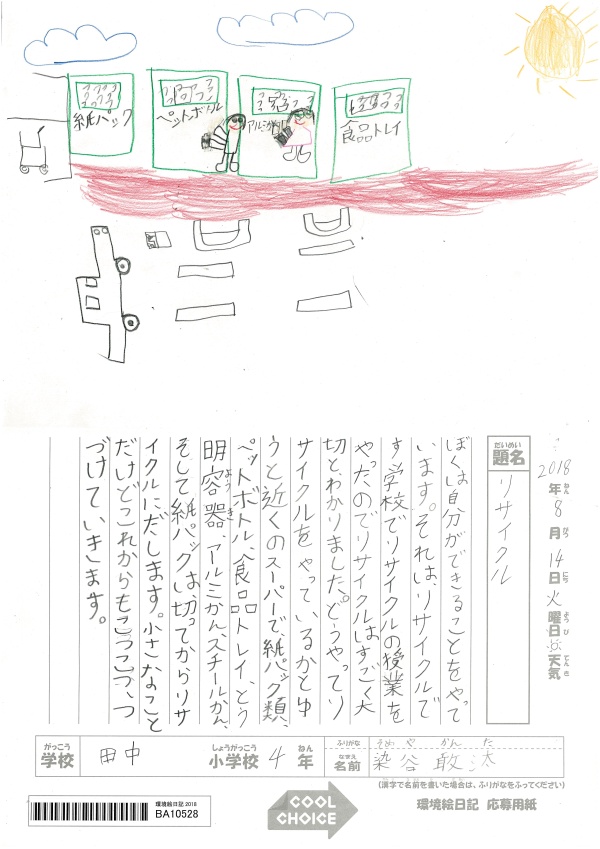 紙パック
ペットボトル
アルミかん
食品トレイ
2018年8月14日火曜日天気
ねん がつ にち よう び てん き
だいめい
題名
リサイクル
ぼくは自分ができることをやって
います。それは、リサイクルで
す学校でリサイクルの授業を
やったのでリサイクルはすごく大
切と、わかりました。どうやってリ
サイクルをやっているかとゆ
うと近くのスーパーで、紙パック類、
ペットボトル、食品トレイ、とう
明容器、アルミかん、スチールかん、
ようき
そして紙パックは、切ってからリサ
イクルにだします。小さなこと
だけどこれからもこつこつ、つ
づけていきます。
がっこう
学校
田中
しょうがっこう ねん
小学校 4 年
ふりがな
や かん た
なまえ
名前
染谷 敢汰
(漢字で名前を書いた場合は、ふりがなをふってください)
環境絵日記2018
BA10528
COOL
CHOICE
環境絵日記 応募用紙